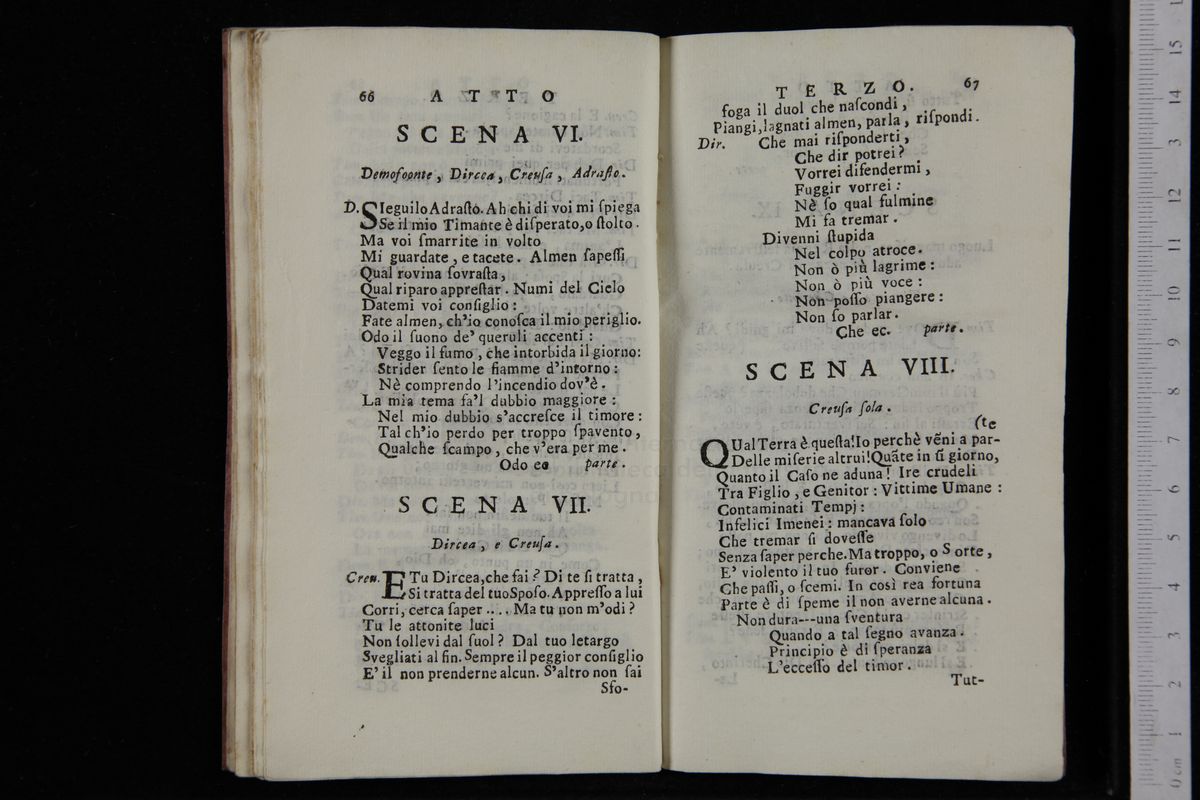 66 A T T O
SCENA VI.
Demofoonte, Dircea, Creuſa, Adraſto.
D. SIeguilo Adraſto. Ah chi di voi mi ſpiega
Se il mio Timante è diſperato, o ſtolto.
Ma voi ſmarrite in volto
Mi guardate, e tacete. Almen ſapeſſi
Qual rovina ſovraſta,
Qual riparo appreſtar. Numi del Cielo
Datemi voi conſiglio:
Fate almen, ch'io conoſca il mio periglio.
Odo il ſuono de' queruli accenti:
Veggo il fumo, che intorbida il giorno:
Strider ſento le fiamme d'intorno:
Nè comprendo l'incendio dov'è.
La mia tema fa'l dubbio maggiore:
Nel mio dubbio s'accreſce il timore:
Tal ch'io perdo per troppo ſpavento,
Qualche ſcampo, che v'era per me.
Odo ec parte.
SCENA VII.
Dircea, e Creuſa.
Creu. E Tu Dircea, che fai? Di te ſi tratta,
Si tratta del tuo Spoſo. Appreſſo a lui
Corri, cerca ſaper .... Ma tu non m'odi?
Tu le attonite luci
Non ſollevi dal ſuol? Dal tuo letargo
Svegliati al fin. Sempre il peggior conſiglio
E' il non prenderne alcun. S'altro non ſai
Sfo-
TERZO. 67
foga il duol che naſcondi,
Piangi, lagnati almen, parla, riſpondi.
Dir. Che mai riſponderti,
Che dir potrei?
Vorrei difendermi,
Fuggir vorrei:
Nè ſo qual fulmine
Mi fa tremar.
Divenni ſtupida
Nel colpo atroce.
Non ò più lagrime:
Non ò più voce:
Non poſſo piangere:
Non ſo parlar.
Che ec. parte.
SCENA VIII.
Creuſa ſola.
(te
QUal Terra è queſta! Io perchè vēni a par-
Delle miſerie altrui! Quāte in ſi giorno,
Quanto il Caſo ne aduna! Ire crudeli
Tra Figlio, e Genitor: Vittime Umane:
Contaminati Tempj:
Infelici Imenei: mancava ſolo
Che tremar ſi doveſſe
Senza ſaper perche. Ma troppo, o Sorte,
E' violento il tuo furor. Conviene
Che paſſi, o ſcemi. In così rea fortuna
Parte è di ſpeme il non averne alcuna.
Non dura---una ſventura
Quando a tal ſegno avanza.
Principio è di ſperanza
L'ecceſſo del timor.
Tut-